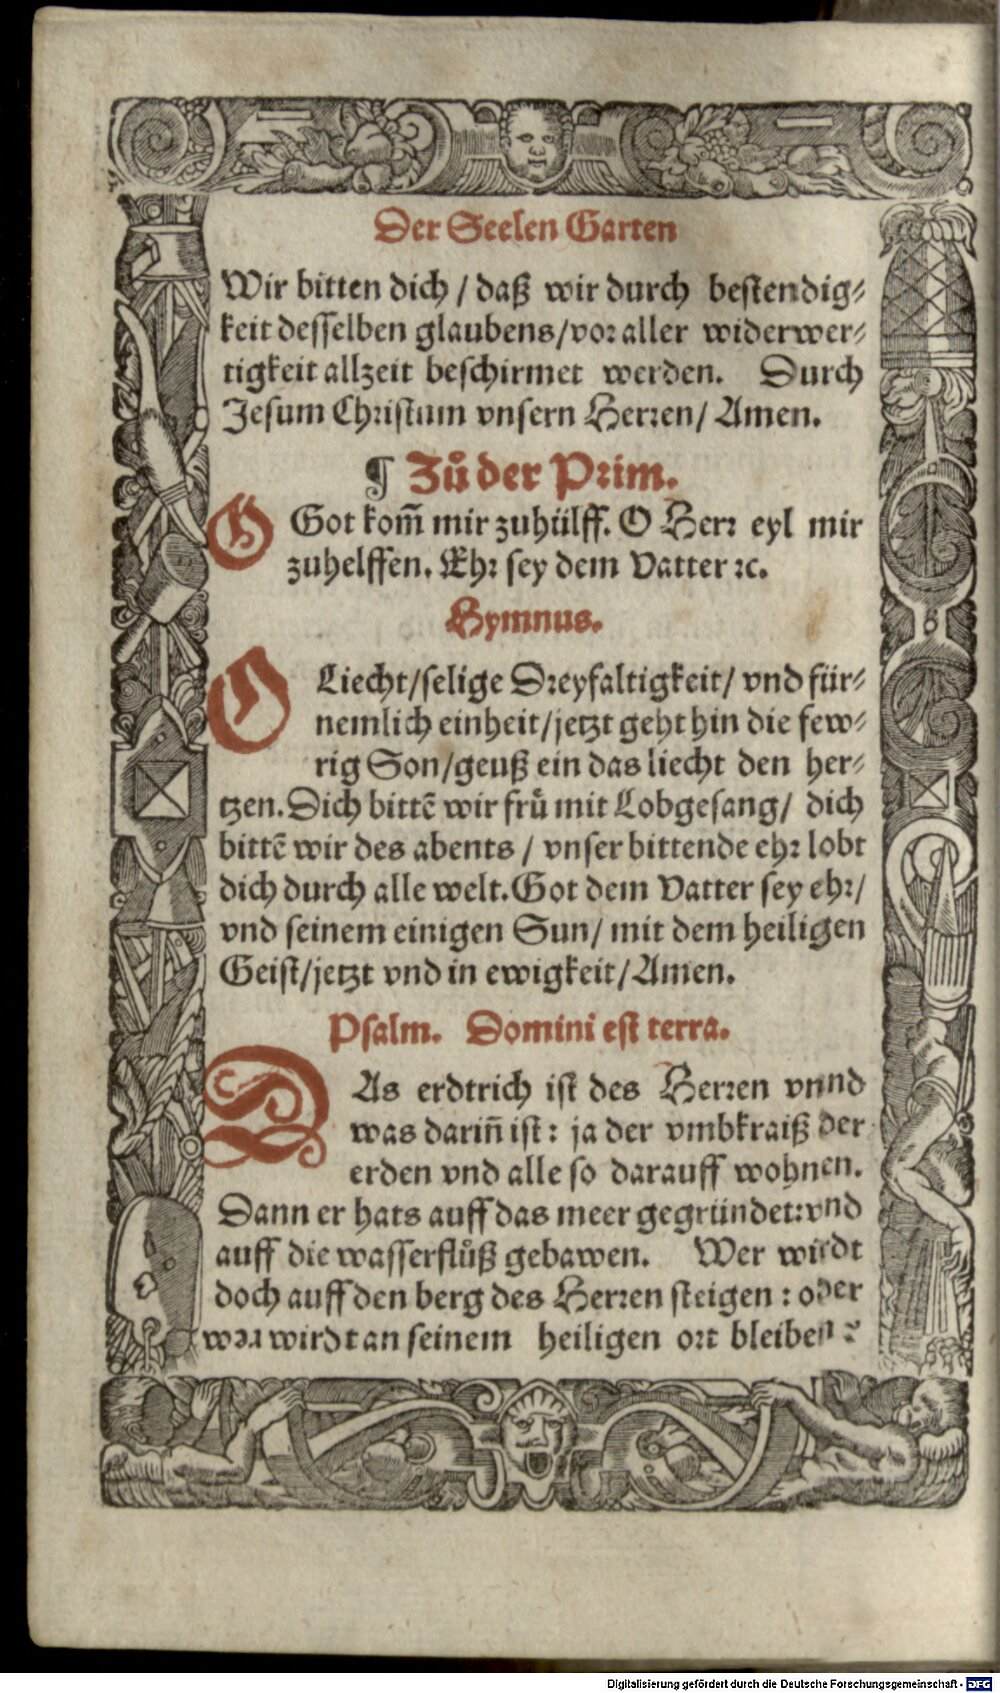 Der Seelen Garten
Wir bitten dich / daß wir durch bestendig⸗
keit desselben glaubens/vor aller widerwer⸗
tigkeit allzeit beschirmet werden. Durch
Jesum Christum vnsern Herren/ Amen.
¶ Zuͦ der Prim.
O Got kom̃ mir zuhülff. O Herr eyl mir
zuhelffen. Ehr sey dem Vatter ꝛc.
Hymnus.
O Liecht/selige Dreyfaltigkeit/ vnd für⸗
nemlich einheit/jetzt geht hin die few⸗
rig Son/geuß ein das liecht den her⸗
tzen. Dich bittẽ wir fruͤ mit Lobgesang/ dich
bittẽ wir des abents / vnser bittende ehr lobt
dich durch alle welt. Got dem Vatter sey ehr/
vnd seinem einigen Sun/ mit dem heiligen
Geist/jetzt vnd in ewigkeit/Amen.
Psalm. Domini est terra.
DAs erdtrich ist des Herren vnnd
was dariñ ist: ja der vmbkraiß der
erden vnd alle so darauff wohnen.
Dann er hats auff das meer gegründet: vnd
auff die wasserfluͤß gebawen. Wer wirdt
doch auff den berg des Herren steigen : oder
wirdt an seinem heiligen ort bleiben?
Digitalisierung gefördert durch die Deutsche Forschungsgemeinschaft - DFG